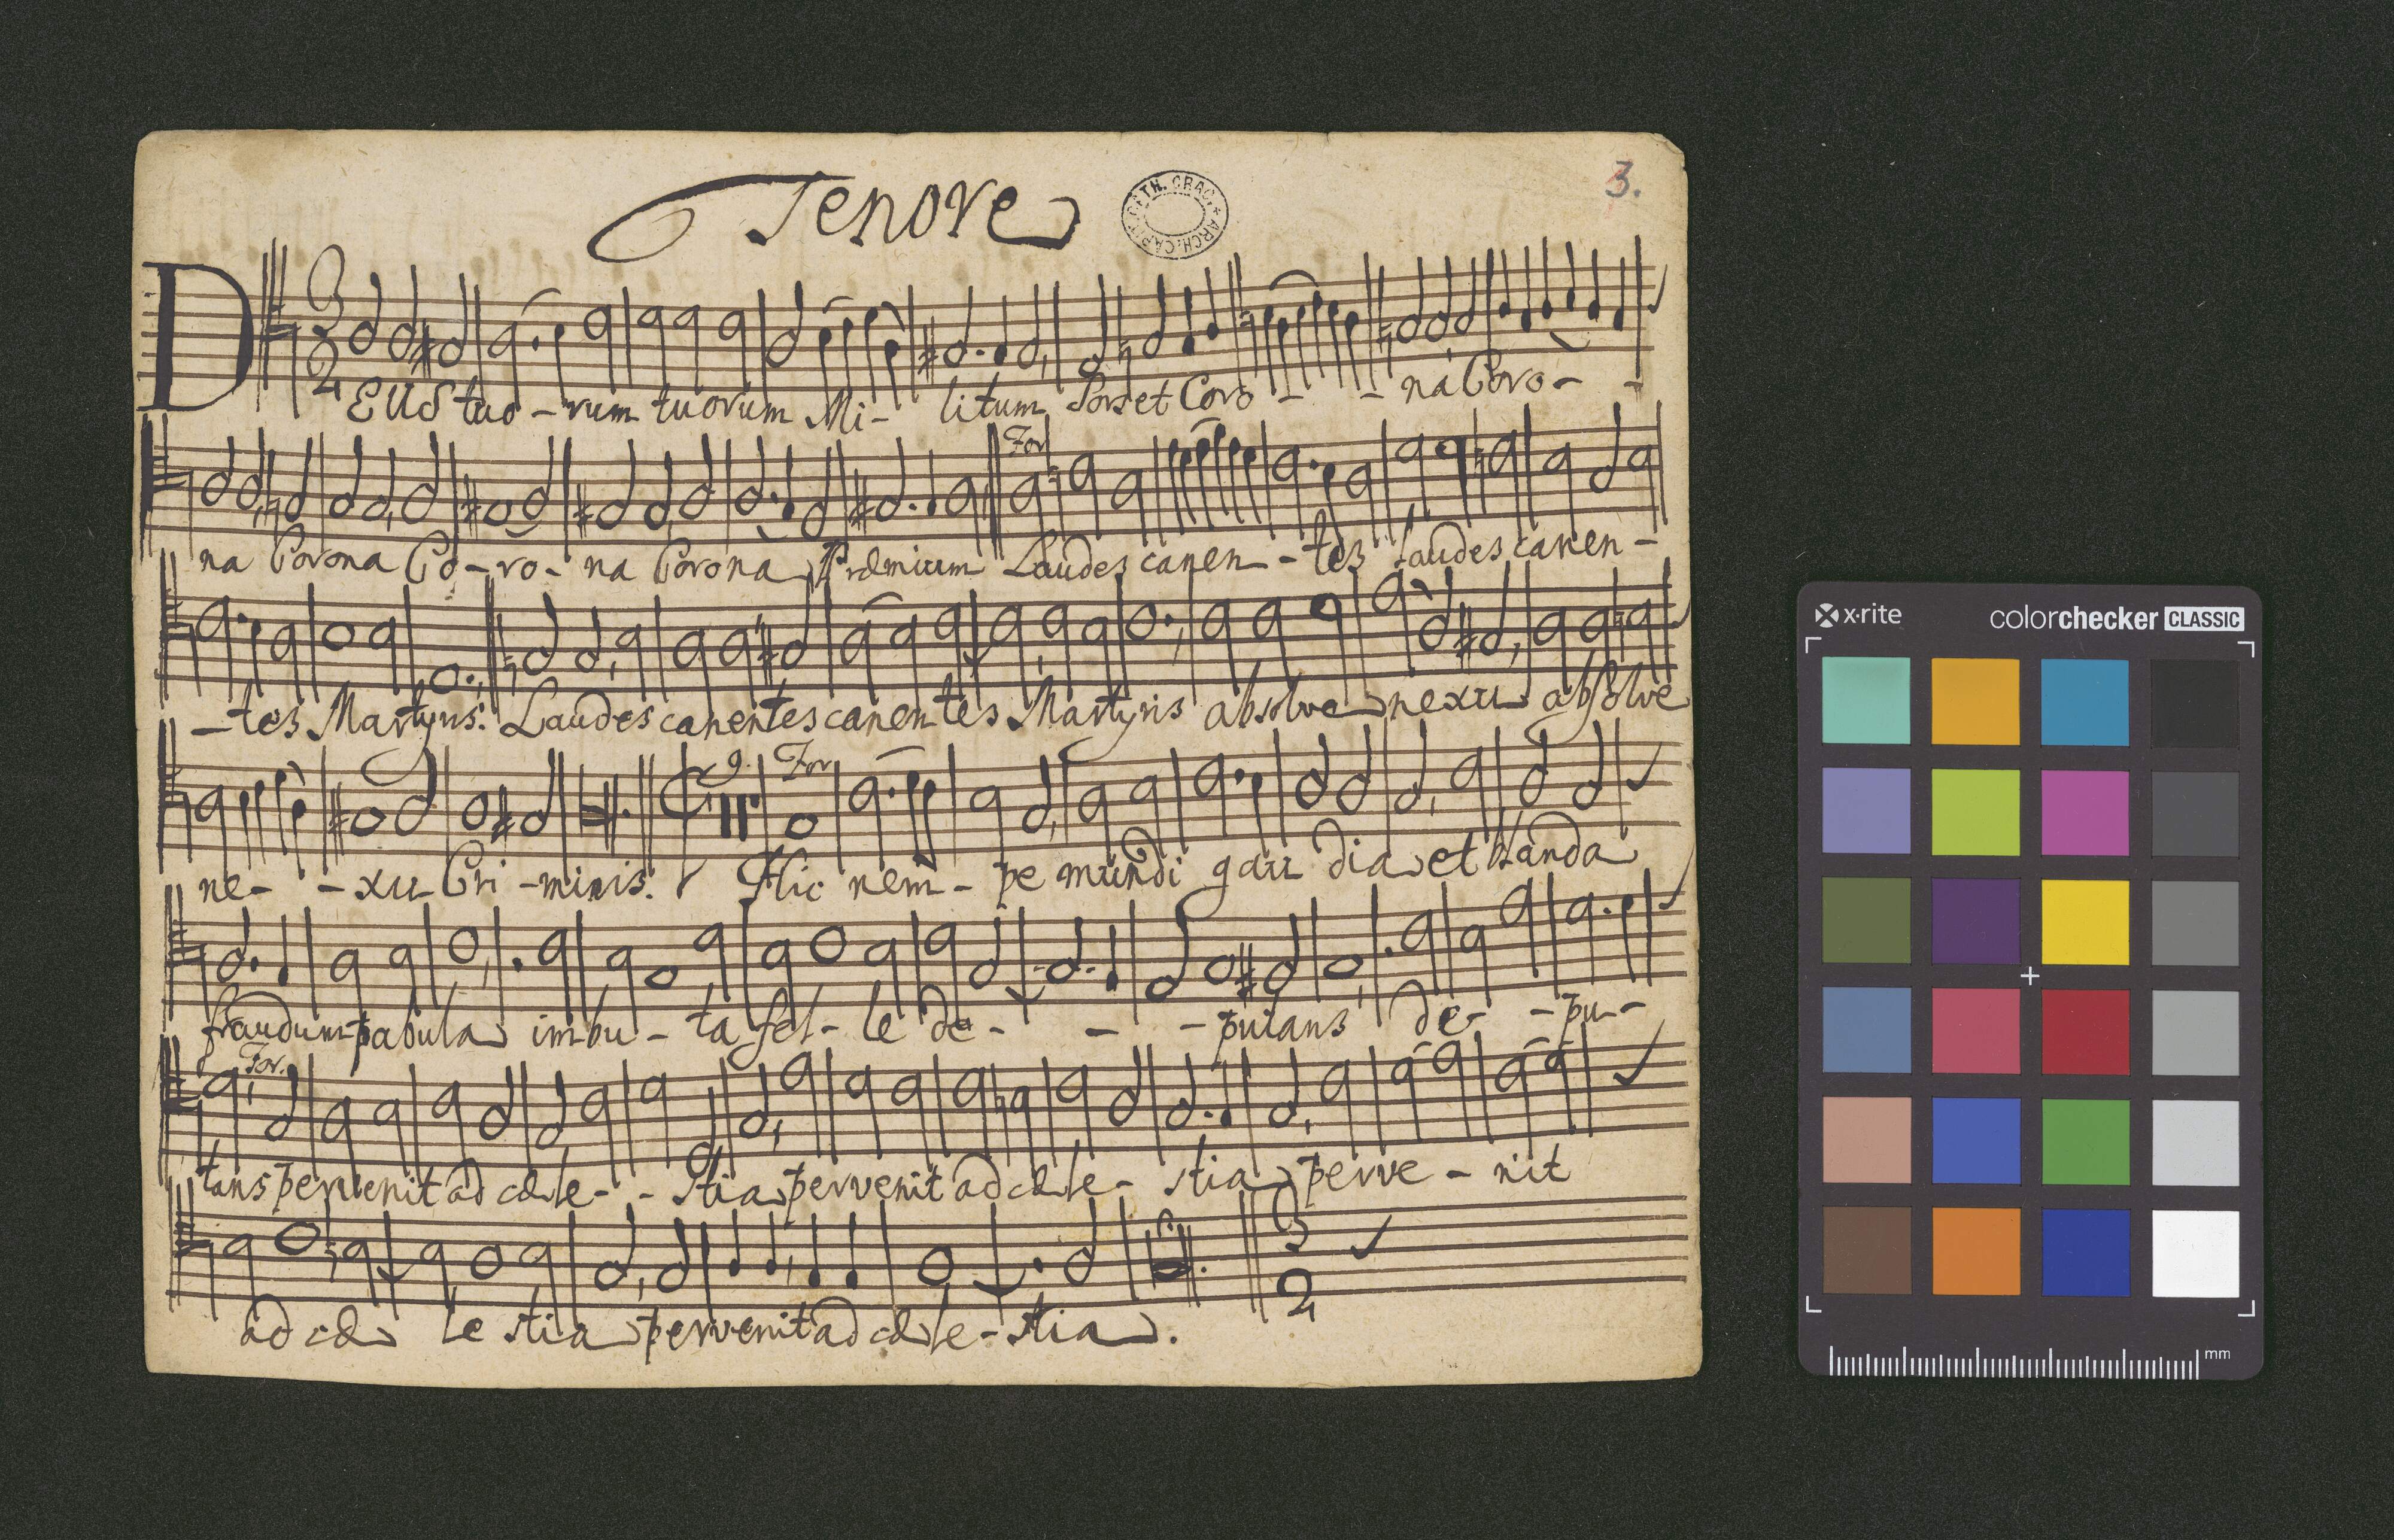 Tenore
CAPIT. CATH. CRAC. ARCH.
3.
3
2
DEUS tuo - rum tuorum Mi - litum Sors et Coro - - na Coro - -
For
na Corona Co - ro - na Corona Præmium Laudes canen - - tes Laudes canen -
- tes Martyris. Laudes canentes canen tes Martyris absolve nexu absolve
9. For
ne - - xu Cri - minis. Hic nem - pe mundi gau dia et blanda
fraudum pabula imbu - ta fel - le de - - - putans de - - pu -
For.
tans pervenit ad cæle - - stia pervenit ad cæle - stia perve - nit
3
2
ad cæ le stia pervenit ad cæle - stia.
x·rite
colorchecker CLASSIC
mm